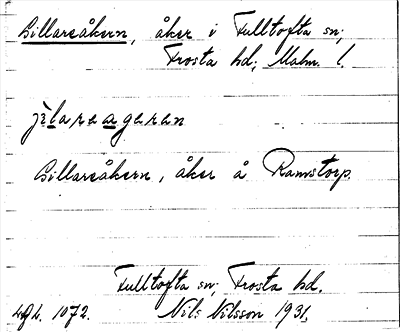 Gillareåkern, åker i Fulltofta sn;
Frosta hd; Malm. l.
jìlareageran
Gillareåkern, åker å Ramstorp.
Fulltofta sn; Frosta hd.
1072. Nils Nilsson 1931.